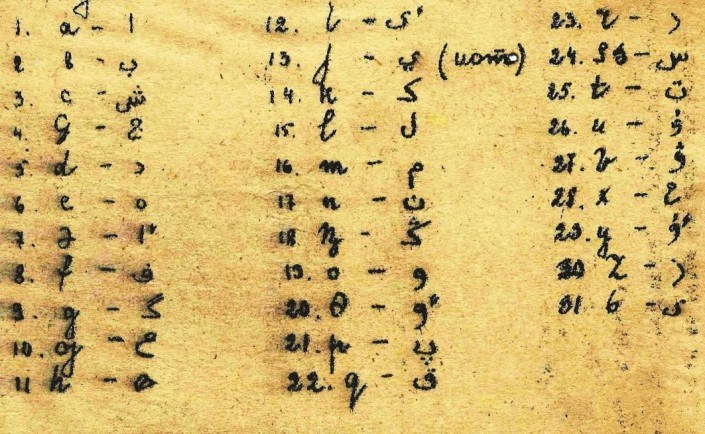 1. a - ا
2 в - ب
3. c - ش
4. ç - ج
5 d - د
6 e - ه
7. ə - أ
8. f - ف
9. g - ک
10. ƣ - ع
11 h - ه
12. i - ئ
13. j - ي (иото)
14. k - ک
15. l - ل
16. m - م
17 n - ن
18 ꞑ - ڭ
19. o - و
20. ɵ - ؤ
21. p - پ
22. q - ق
23. r - ر
24. s - س
25. t - ت
26. u - ۇ
27. v - ۋ
28. x - خ
29. y - ؤ
30 z - ز
31 ь - ى